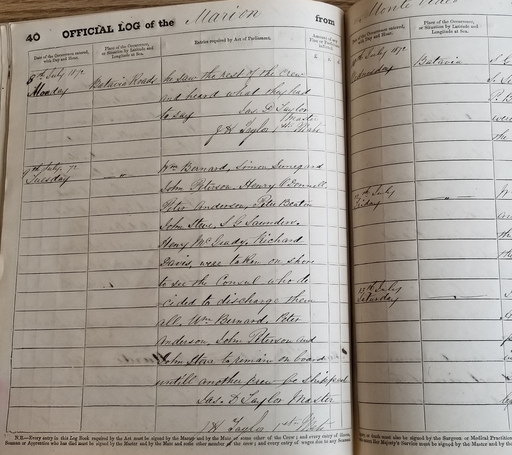 40 OFFICIAL LOG of the Marion from
Date of the Occurrence entered, with Day and Hour.
Place of the Occurrence, or Situation by Latitude and Longitude at Sea.
Entries required by Act of Parliament.
Amount of any Fine or Forfeiture inflicted.
8th July 1872
Monday
Batavia Roads
he saw the rest of the Crew
and heard what they had
to say
Jas. D Taylor
Master
J H Taylor 1st Mate
9th July, 72
Tuesday
"
Wm Bernard, Simon
John Peterson, Henry O'Donnell
Peter Anderson, Peter
John Stove, S. G. Saunders,
Henry McCready, Richard
Davis, were taken on shore
to see the Consul who de
cided to discharge them
all, Wm Bernard, Peter
Anderson, John Peterson and
John Stove to remain on board
untill another crew be shipped
Jas. D Taylor Master
J H Taylor 1st Mate
N.B.—Every entry in this Log Book required by the Act must be signed by the Master and by the Mate or some other of the Crew; and every entry of
Seaman or Apprentice who has died must be signed by the Master and by the Mate and some other member of the crew; and every entry of wages due to any
Monte
Place of the Occurrence, or Situation by Latitude and Longitude at Sea.
Batavia
Friday
"
12th July
Saturday
"
must also be signed by the Surgeon or Medical Practitioner